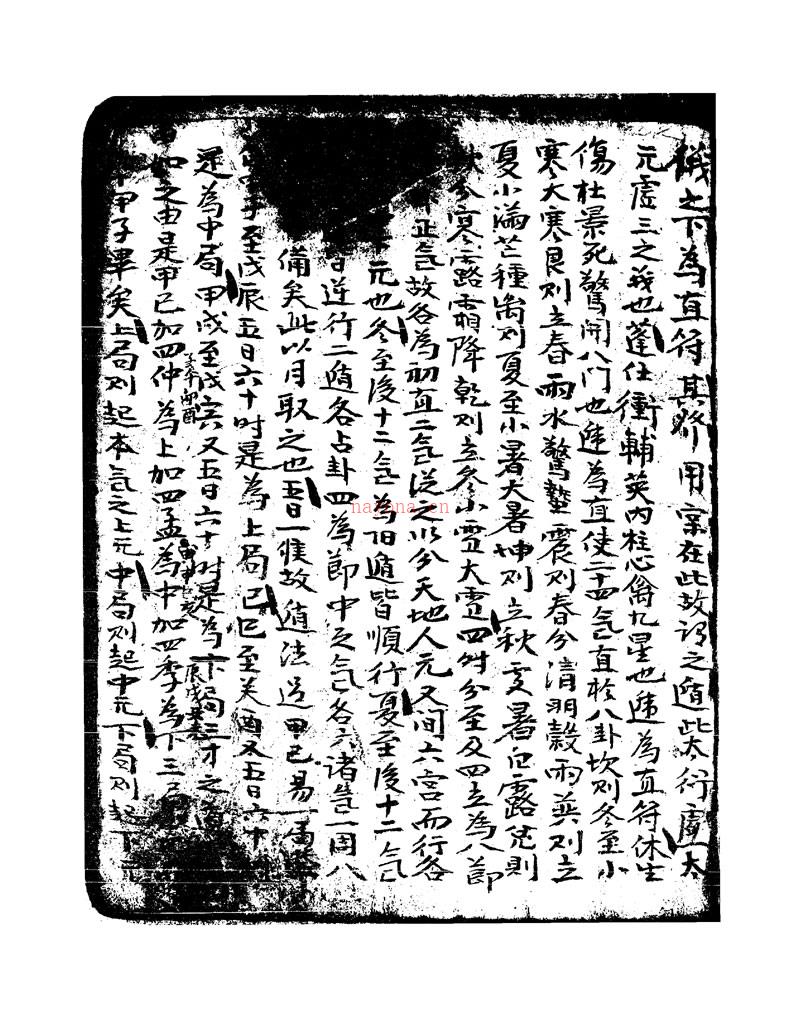 儀之下為直符其所用實在此故謂之遁此大衍虛太
元虛三之義也蓬任衝輔英內柱心禽九星也遞為直符休生
傷杜景死驚開八門也遞為直使二十四气直於八卦坎則冬至小
寒大寒艮則立春雨水驚蟄震則春分清明穀雨巽則立
夏小滿芒種离則夏至小暑大暑坤則立秋處暑白露兌則
秋分寒露霜降乾則立冬小雪大雪四時分至及四立為八節
正气故各為初直二气從之以分天地人元又間六宮而行各
元也冬至後十二气為阳遁皆順行夏至後十二气
逆行二遁各占卦四為節中之气各六諸气一周八
備矣此以月取之也五日一候故遁法遇甲己易一局
子至戊辰五日六十时是為上局己巳至癸酉又五日六十
是為中局甲戌至戊寅又五日六十时是為下局三才之
如之由是甲己加四仲子午卯酉為上加四孟寅申巳亥為中加四季辰戌丑未為下三
甲子畢矣上局則起本气之上元中局則起中元下局則起下
naxxna.cn